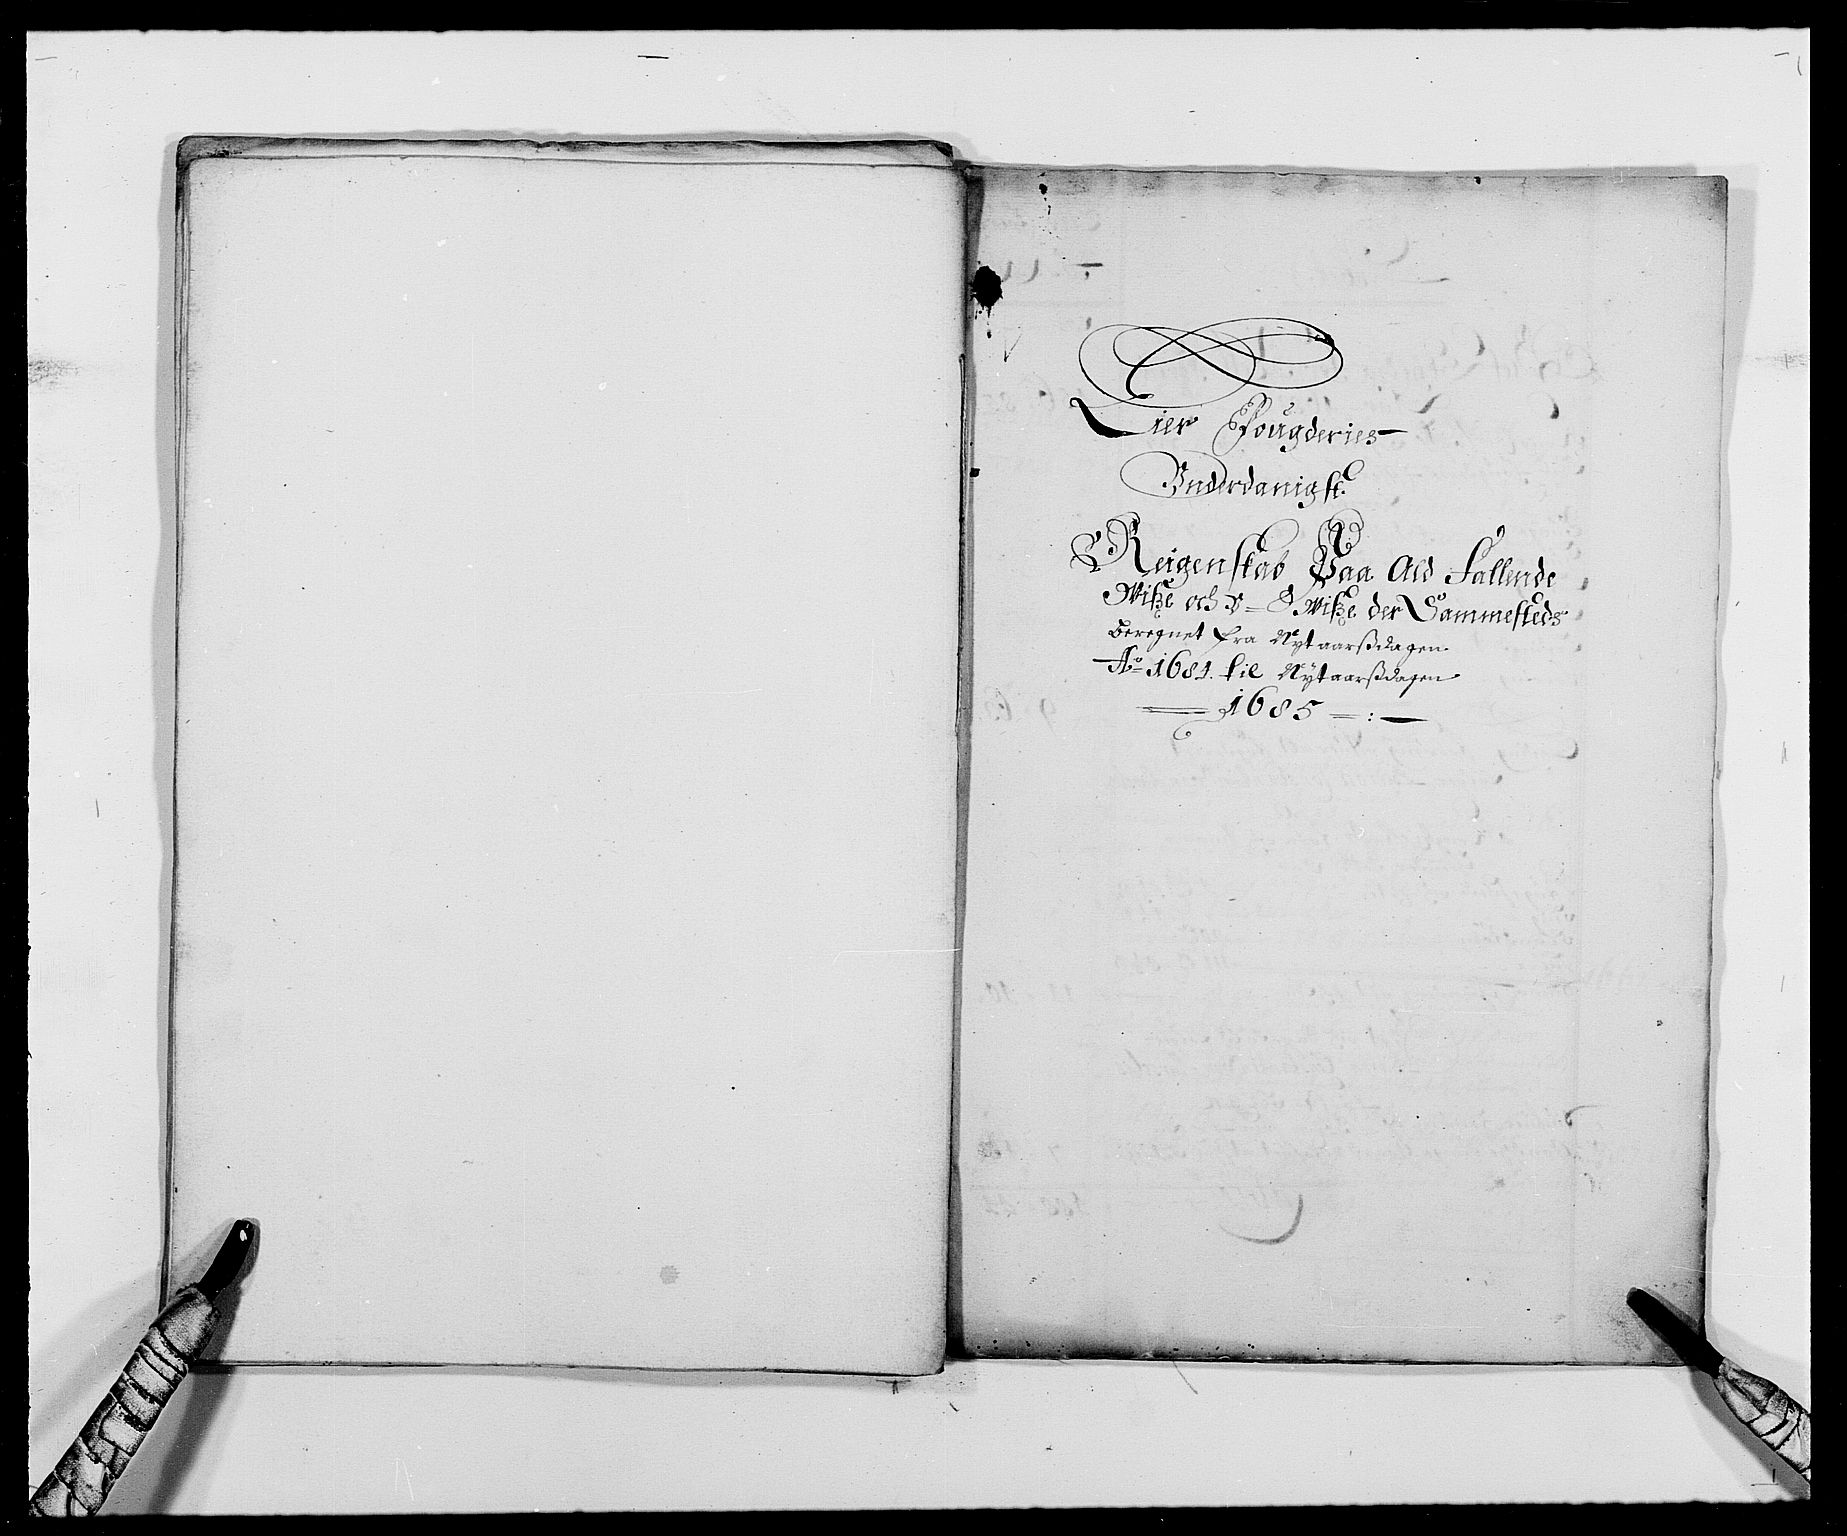 Lier Fougderies
Underdanigst
Reigenskab Paa Ald Fallende
Wiße och U=Wiße der Sammesteds
Beregnet fra Nytaarßdagen
Ao 1684. til Nytaarßdagen
1685